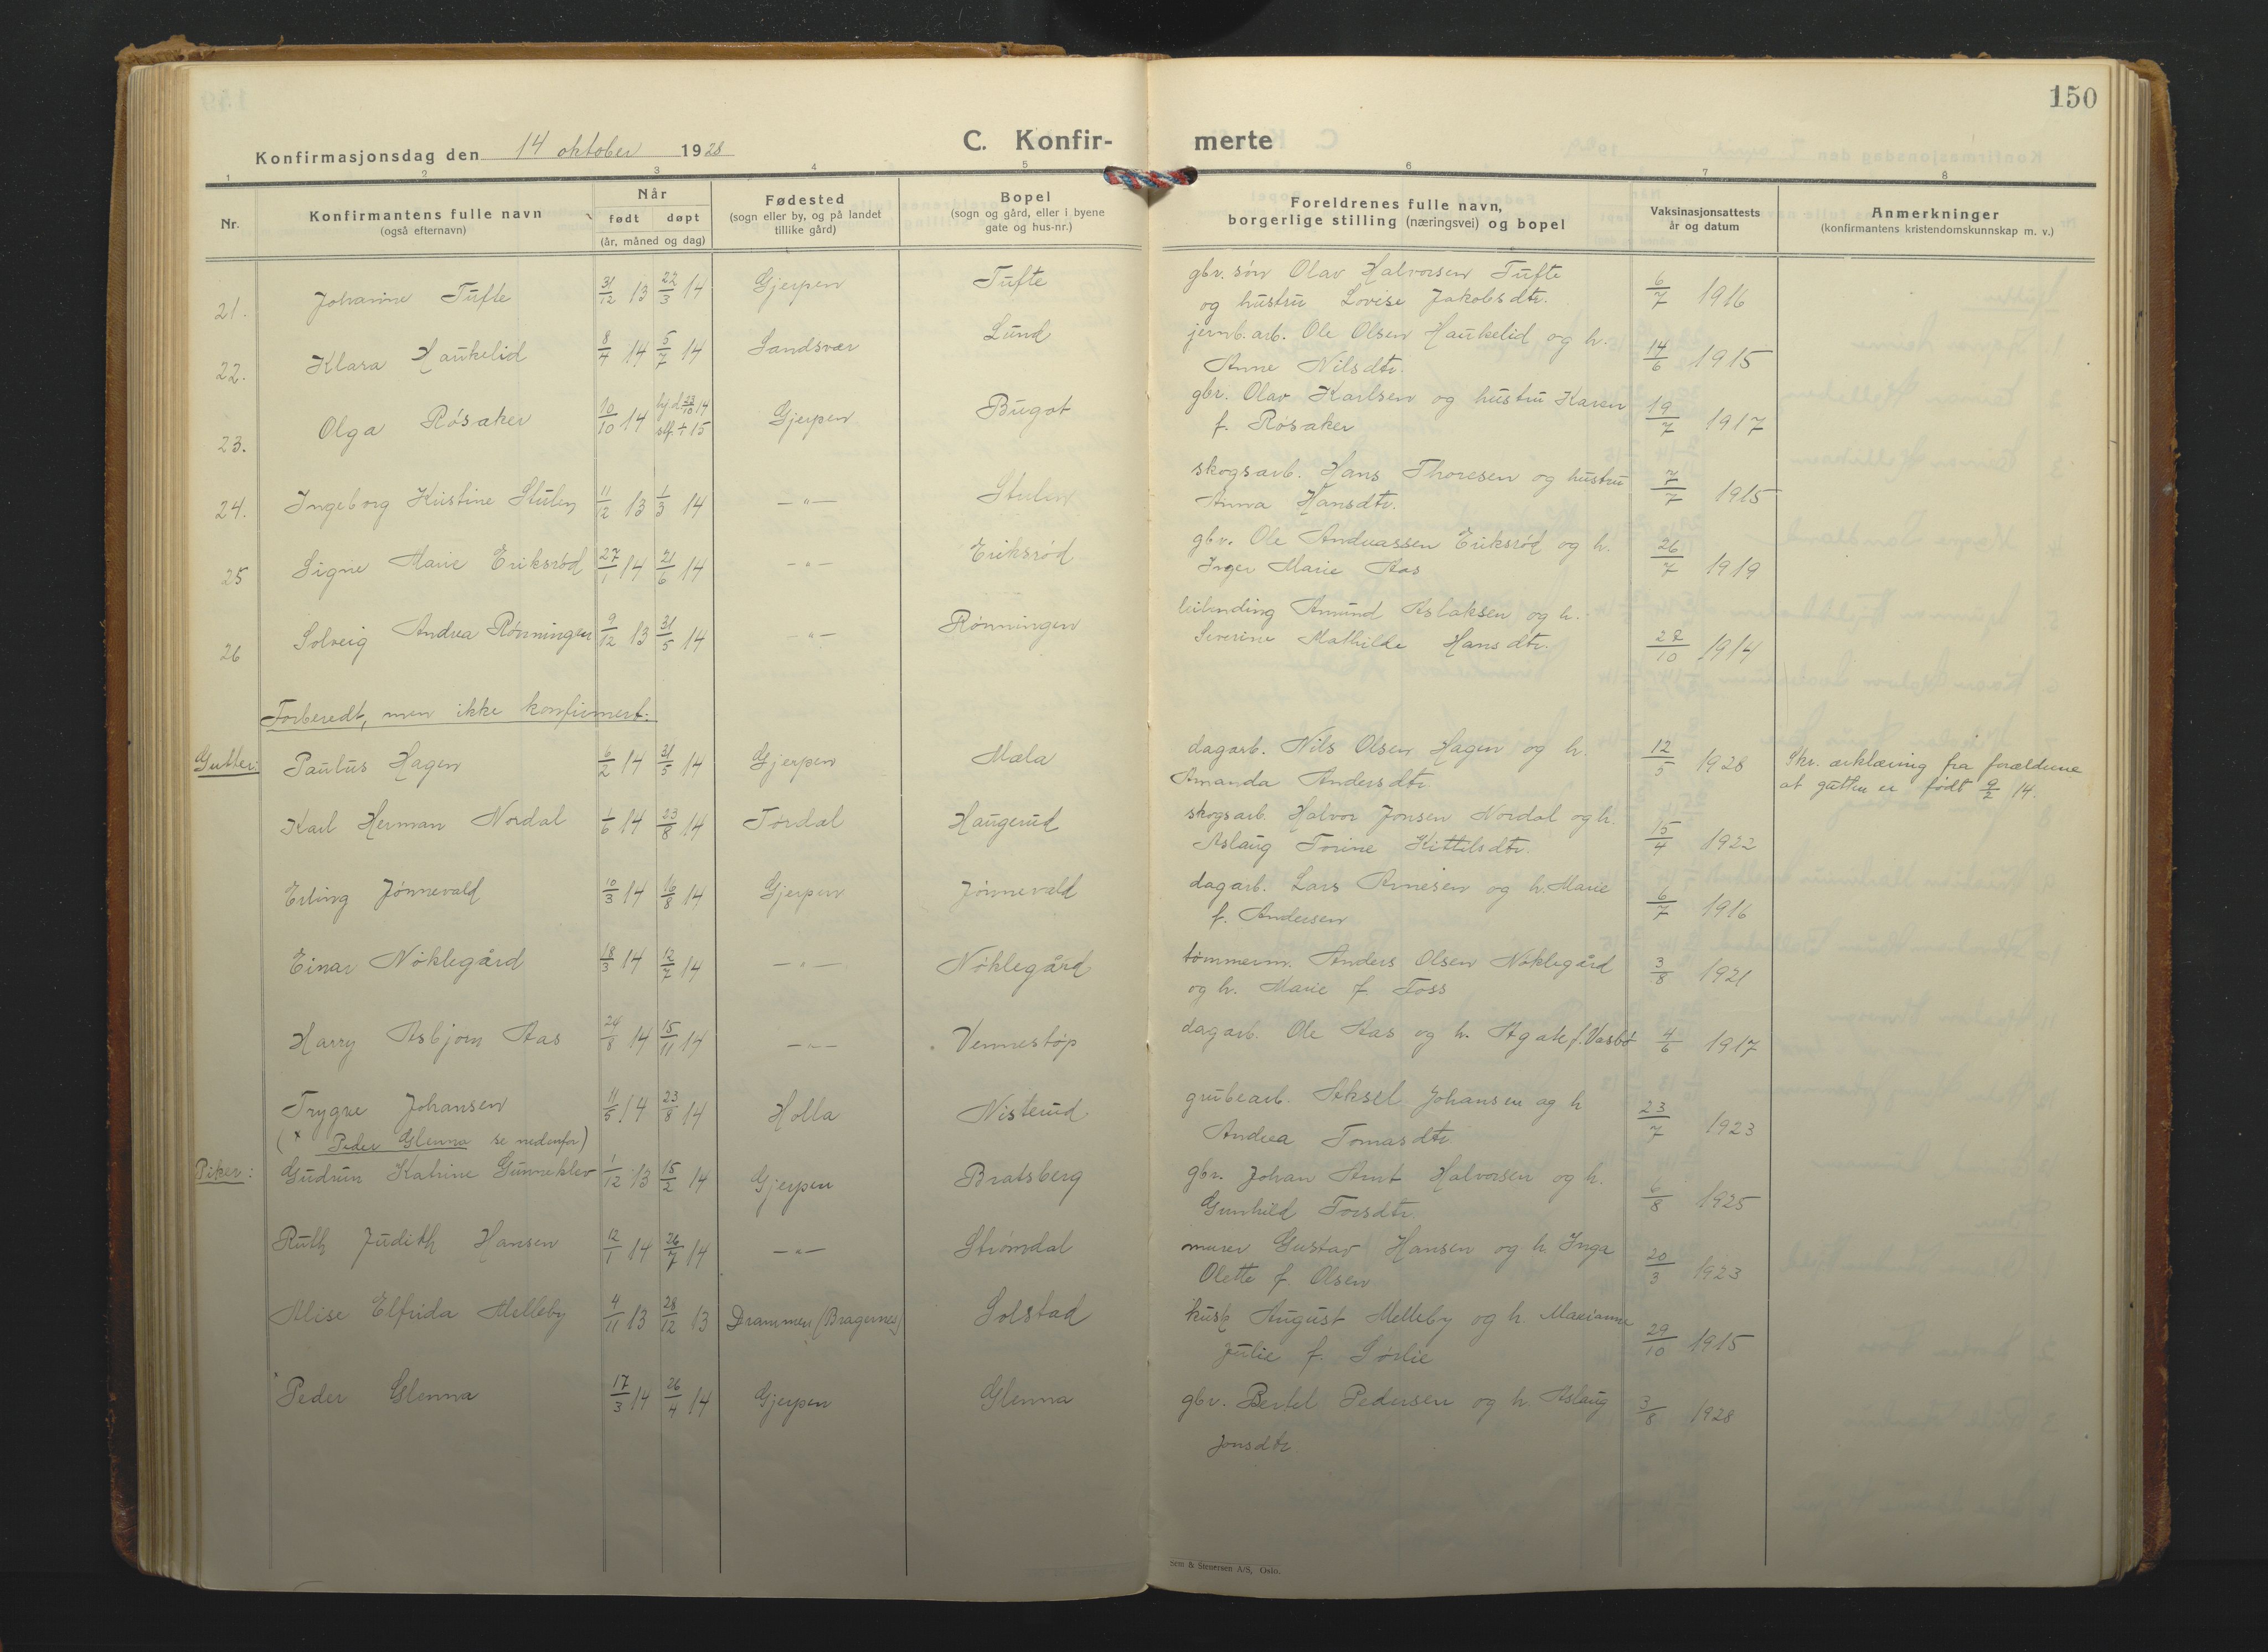 150
Konfirmasjonsdag den 14 oktober 1928
C. Konfir- merte
1 2 3 4 5 6 7 8
Nr.
Konfirmantens fulle navn
(også efternavn)
Når
født døpt
(år, måned og dag)
Fødested
(sogn eller by, og på landet
tillike gård)
Bopel
(sogn og gård, eller i byene
gate og hus-nr.)
Foreldrenes fulle navn,
borgerlige stilling (næringsvei) og bopel
Vaksinasjonsattests
år og datum
Anmerkninger
(konfirmantens kristendomskunnskap m. v.)
21. Johanne Tufte 31/12 13 22/3 14 Gjerpen Tufte gbr. søn Olav Halvorsen Tufte 6/7 1916
og hustru Lovise Jakobsdtr.
22. Klara Haukelid 8/4 14 5/7 14 Sandsvær Lund jernb.arb. Ole Olsen Haukelid og h. 14/6 1915
Anne Nilsdtr.
23. Olga Røsaker 10/10 14 hj.d. 23/10 14 Gjerpen Bugot gbr. Olav Karlsen og hustru Karen 19/7 1917
f. Røsaker
24. Ingeborg Kristine Stulen 11/12 13 1/3 14 —"— Stulen skogsarb. Hans Thoresen og hustru 7/7 1915
Anna Hansdtr.
25 Signe Marie Eriksrød 27/1 14 21/6 14 —"— Eriksrød gbr. Ole Andreassen Eriksrød og h. 26/7 1919
Inger Marie Aas
26 Solveig Andrea Rønningen 9/12 13 31/5 14 —"— Rønningen leilending Amund Aslaksen og h. 28/10 1914
Severine Mathilde Hansdtr.
Forberedt, men ikke konfirmert:
Gutter: Paulus Hagen 6/2 14 31/5 14 Gjerpen Mæla dagarb. Nils Olsen Hagen og h. 12/5 1928 Skr. erklæring fra forældrene
Amanda Andersdtr. at gutten er født 9/2 14.
Karl Herman Nordal 1/6 14 23/8 14 Tørdal Haugerud skogsarb. Halvor Jonsen Nordal og h. 15/4 1922
Aslaug Torine Kittilsdtr.
Erling Jønnevald 10/3 14 16/8 14 Gjerpen Jønnevald dagarb. Lars Arnesen og h. Marie 6/7 1916
f. Andersen
Einar Nøklegård 18/3 14 12/7 14 —"— Nøklegård tømmerm. Anders Olsen Nøklegård 3/8 1921
og h. Marie f. Foss
Harry Asbjørn Aas 24/8 14 15/11 14 —"— Vennestøp dagarb. Ole Aas og h. Agate f. Vasbø 4/6 1917
Trygve Johansen 11/5 14 23/8 14 Holla Nisterud grubearb. Aksel Johansen og h 23/7 1923
(x Peder Glenna se nedenfor) Andrea Tomasdtr
Piker: Gudrun Katrine Gunneklev 1/12 13 15/2 14 Gjerpen Bratsberg gbr. Johan Arnt Halvorsen og h. 6/8 1925
Gunhild Torsdtr.
Ruth Judith Hansen 12/1 14 26/7 14 —"— Strømdal murer Gustav Hansen og h. Inga 20/3 1923
Olette f. Olsen
Alise Elfrida Melleby 4/11 13 28/12 13 Drammen (Bragernes) Solstad kusk August Melleby og h. Marianne 29/10 1915
Julie f. Sørlie
Peder Glenna 17/3 14 26/4 14 Gjerpen Glenna gbr. Bertel Pedersen og h. Aslaug 3/8 1928
Jonsdtr.
Sem & Stenersen A/S, Oslo.